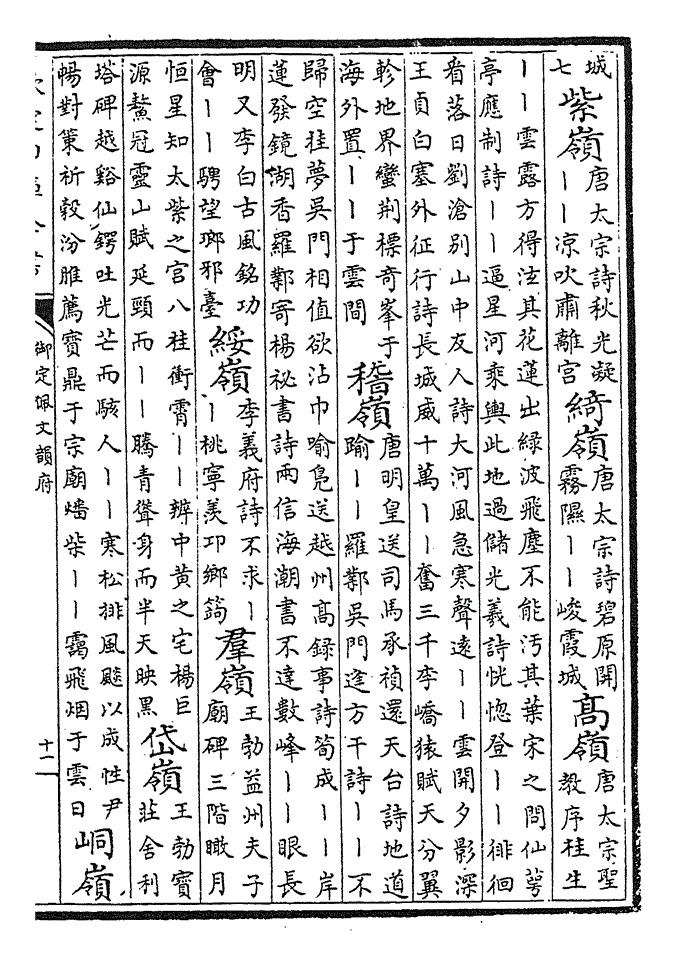 城
七
紫嶺
唐太宗詩秋光凝
丨丨凉吹肅離宮
綺嶺
唐太宗詩碧原開
霧隰丨丨峻霞城
高嶺
唐太宗聖
教序桂生
丨丨雲露方得泫其花蓮出綠波飛塵不能汚其葉宋之問仙萼
亭應制詩丨丨逼星河乘輿此地過儲光羲詩恍惚登丨丨徘徊
看落日劉滄別山中友人詩大河風急寒聲遠丨丨雲開夕影深
王貞白塞外征行詩長城威十萬丨丨奮三千李嶠猿賦天分翼
軫地界蠻荆標奇峯于
海外置丨丨于雲間
稽嶺
唐明皇送司馬承禎還天台詩地道
踰丨丨羅鄴吳門逢方干詩丨丨不
歸空挂夢吳門相值欲沾巾喻鳧送越州高録事詩筍成丨丨岸
蓮發鏡湖香羅鄴寄楊祕書詩兩信海潮書不達數峰丨丨眼長
明又李白古風銘功
會丨丨騁望瑯邪臺
綏嶺
李義府詩不求丨
丨桃寧羨邛鄉蒟
羣嶺
王勃益州夫子
廟碑三階瞰月
恒星知太紫之宮八桂衝霄丨丨辨中黄之宅楊巨
源鰲冠靈山賦延頸而丨丨騰青聳身而半天映黑
岱嶺
王勃寶
莊舍利
塔碑越谿仙鍔吐光芒而駭人丨丨寒松排風飈以成性尹
暢對策祈穀汾脽薦寶鼎于宗廟燔柴丨丨靄飛烟于雲日
峒嶺
御定佩文韻府